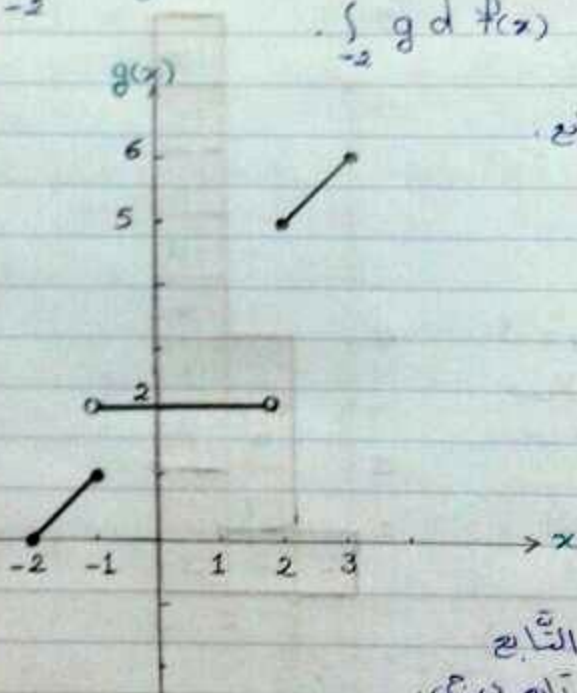 -2
∫ g d f(x)
-2
g(x)
6
5
2
-2 -1 1 2 3 x
التَّابع